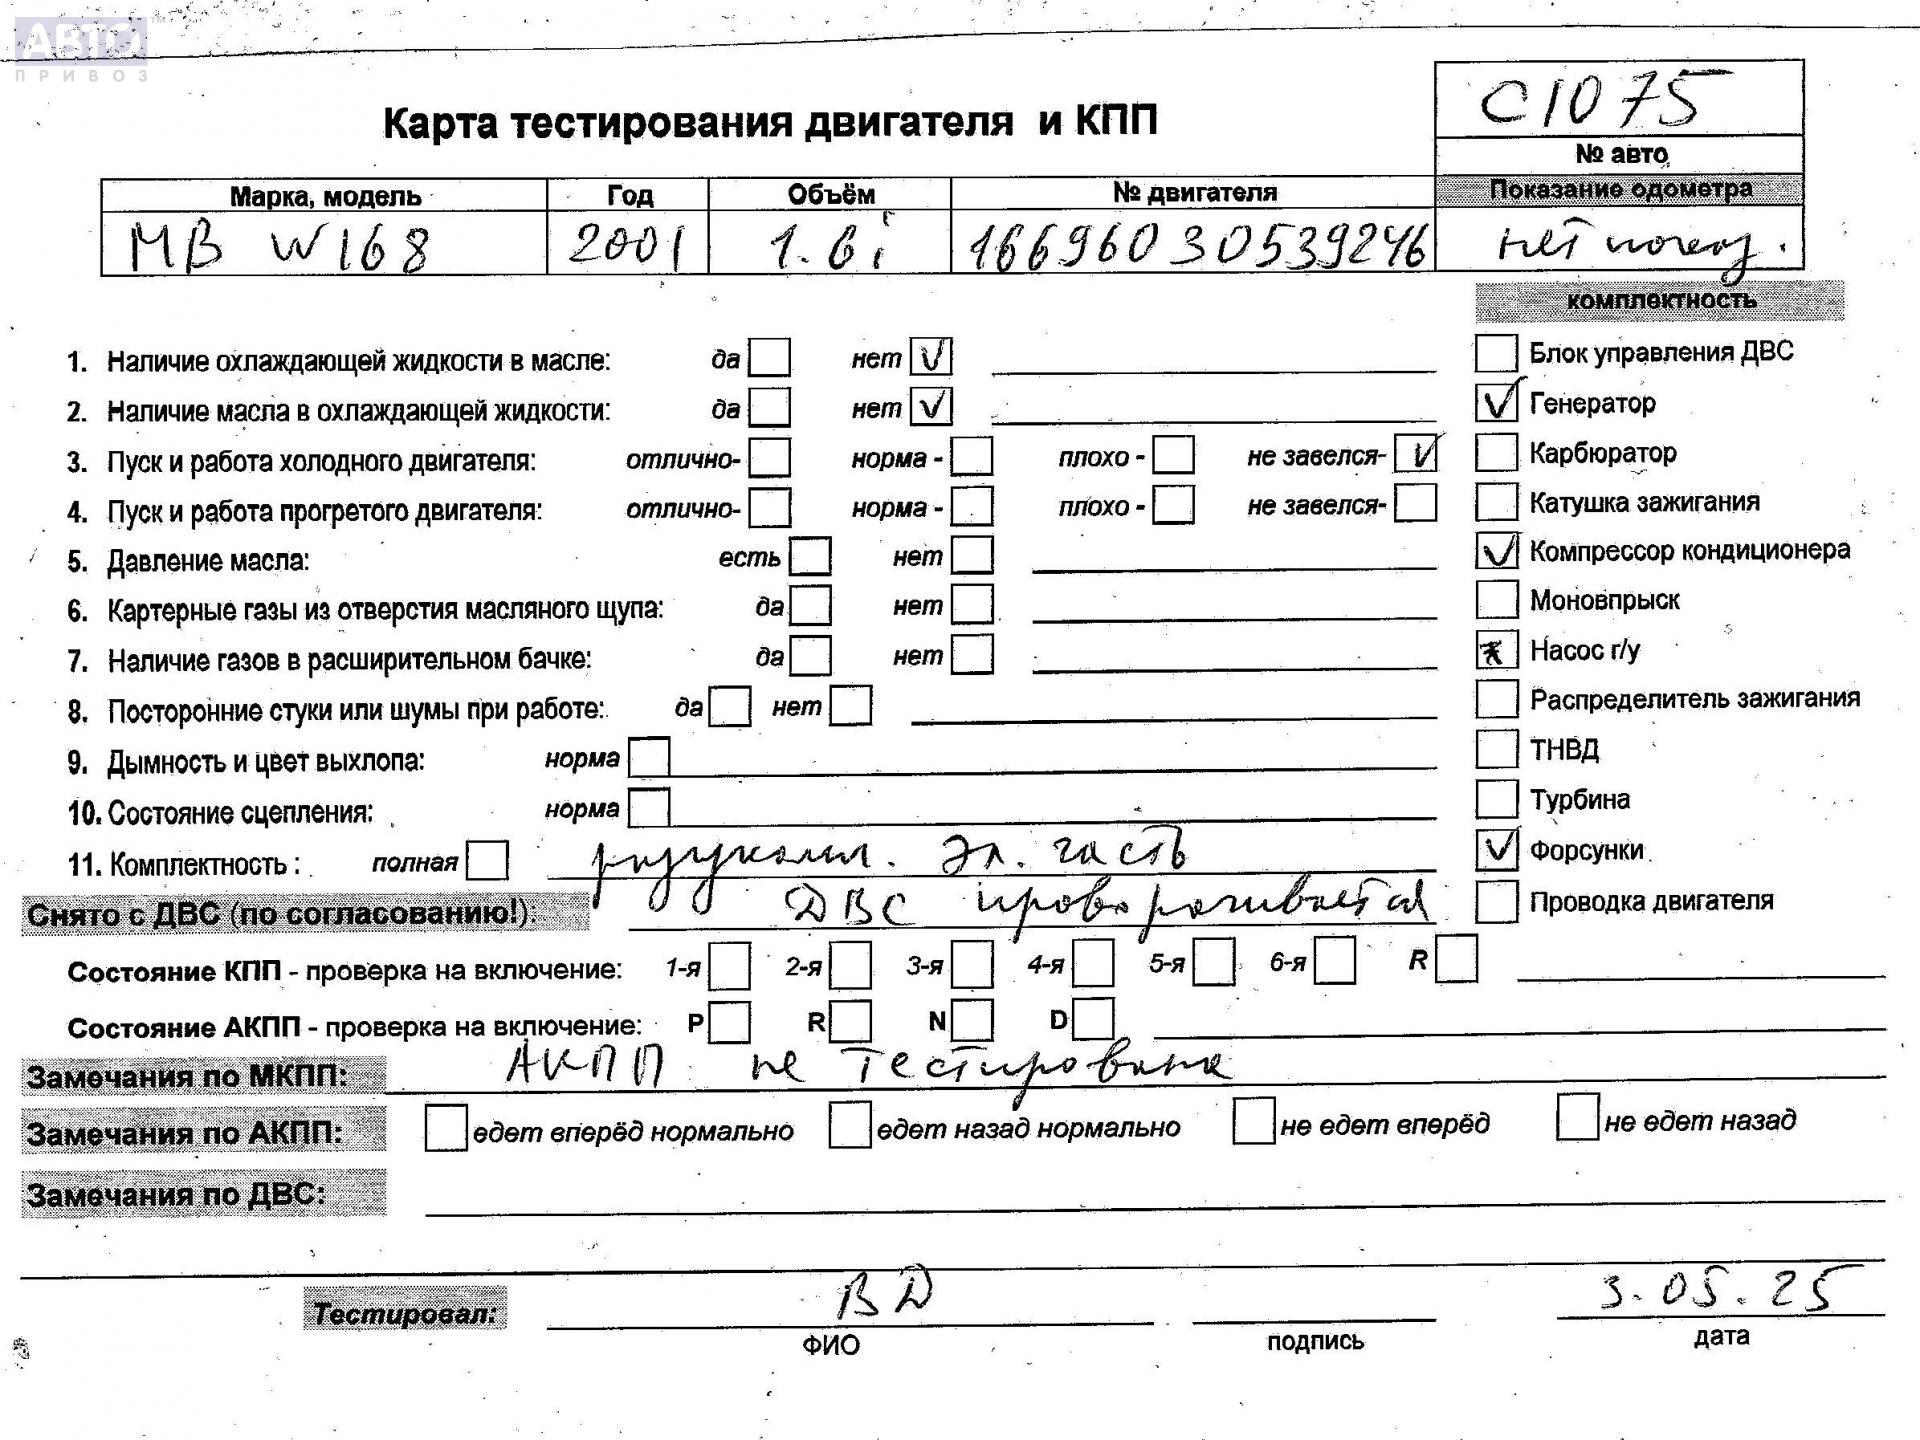 АВТО
ПРИВОЗ
С1075
Карта тестирования двигателя и КПП
№ авто
Марка, модель Год Объём № двигателя Показание одометра
MB W168 2001 1.6i 16696030539246 нет показ.
комплектность
1. Наличие охлаждающей жидкости в масле: да нет V
Блок управления ДВС
2. Наличие масла в охлаждающей жидкости: да нет V
V Генератор
3. Пуск и работа холодного двигателя: отлично- норма - плохо - не завелся- V
Карбюратор
4. Пуск и работа прогретого двигателя: отлично- норма - плохо - не завелся-
Катушка зажигания
5. Давление масла: есть нет
V Компрессор кондиционера
6. Картерные газы из отверстия масляного щупа: да нет
Моновпрыск
7. Наличие газов в расширительном бачке: да нет
Насос г/у
8. Посторонние стуки или шумы при работе: да нет
Распределитель зажигания
9. Дымность и цвет выхлопа: норма
ТНВД
10. Состояние сцепления: норма
Турбина
11. Комплектность : полная разукомпл. эл. часть
V Форсунки
Снято с ДВС (по согласованию!): ДВС проворачивается
Проводка двигателя
Состояние КПП - проверка на включение: 1-я 2-я 3-я 4-я 5-я 6-я R
Состояние АКПП - проверка на включение: P R N D
Замечания по МКПП: АКПП не тестирована
Замечания по АКПП: едет вперёд нормально едет назад нормально не едет вперёд не едет назад
Замечания по ДВС:
Тестировал: ВД 3.05.25
ФИО подпись дата